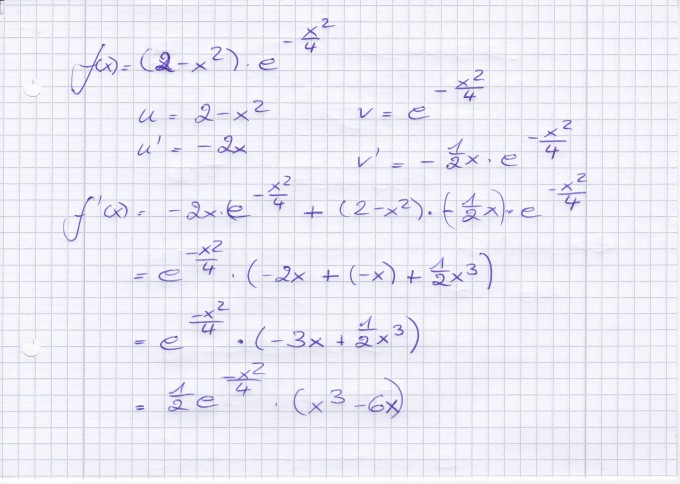 f(x) = (2 - x²) · e^(-x²/4)
u = 2 - x² v = e^(-x²/4)
u' = -2x v' = -1/2 x · e^(-x²/4)
f'(x) = -2x · e^(-x²/4) + (2 - x²) · (-1/2 x) · e^(-x²/4)
= e^(-x²/4) · (-2x + (-x) + 1/2 x³)
= e^(-x²/4) · (-3x + 1/2 x³)
= 1/2 e^(-x²/4) · (x³ - 6x)